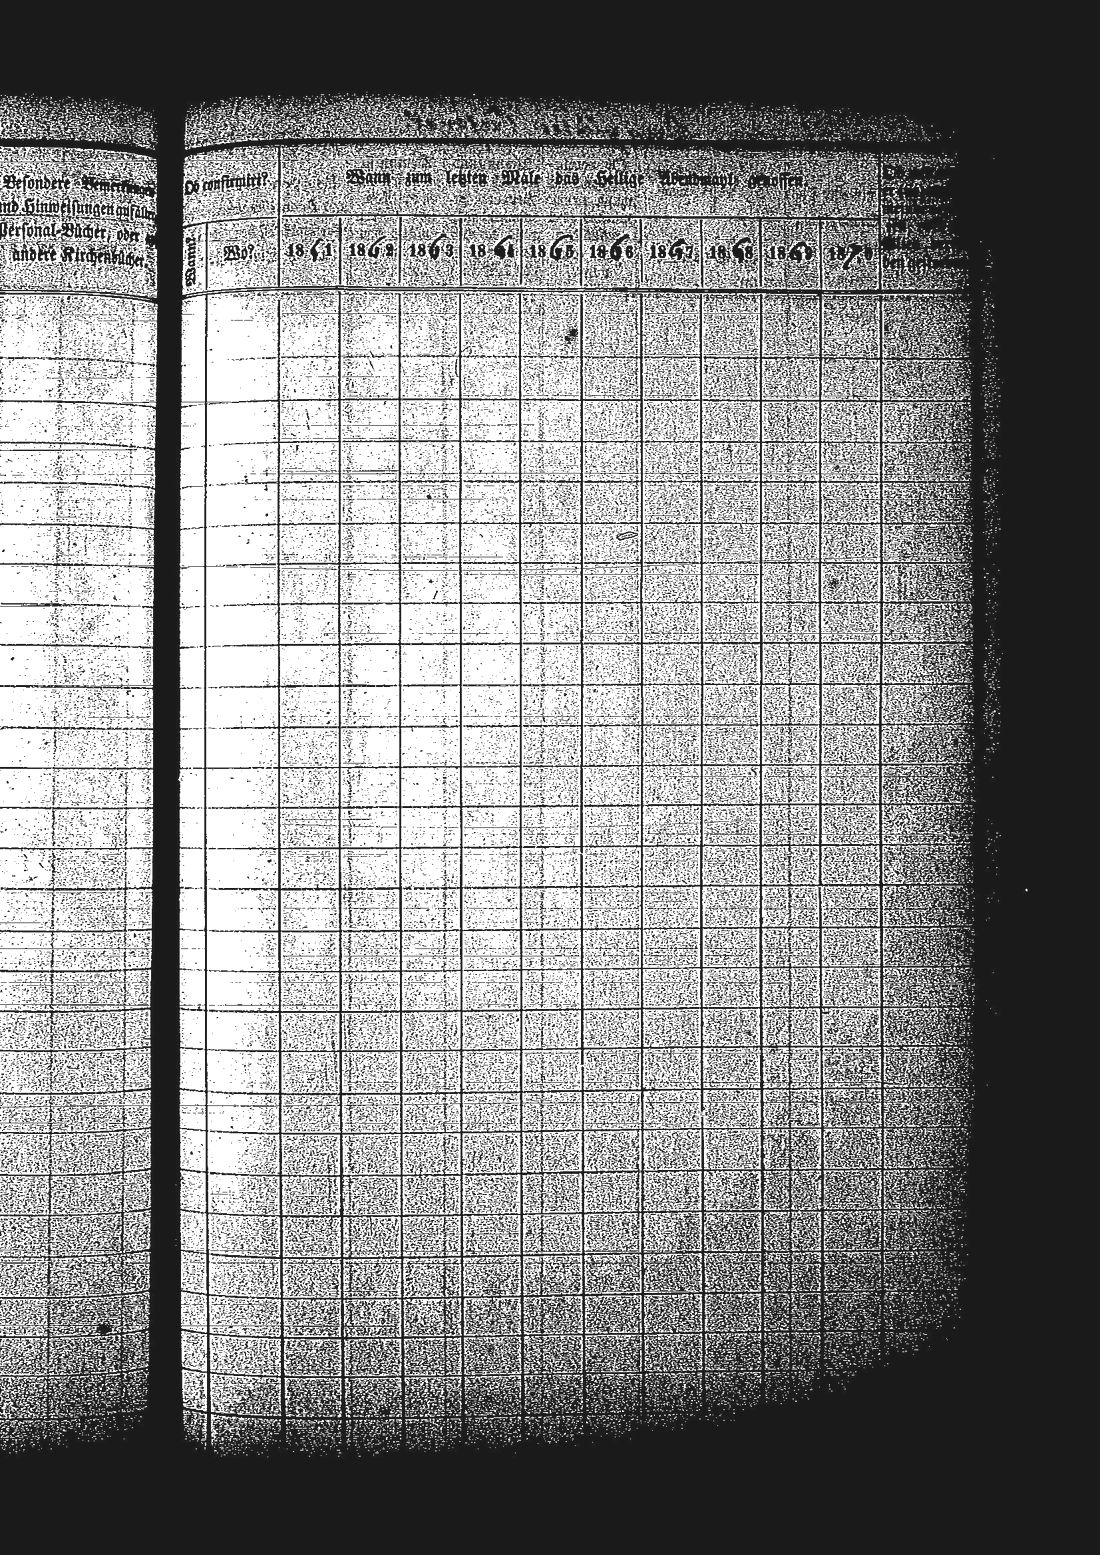 Besondere Bemerkungen
und Hinweisungen auf die
Personal-Bücher, oder
andere Kirchenbücher.
Ob confirmirt?
Wann?
Wo?
Wann zum letzten Male das Heilige Abendmahl genossen.
1861. 1862. 1863 1864 1865. 1866 1867. 1868 1869 1870
Ob